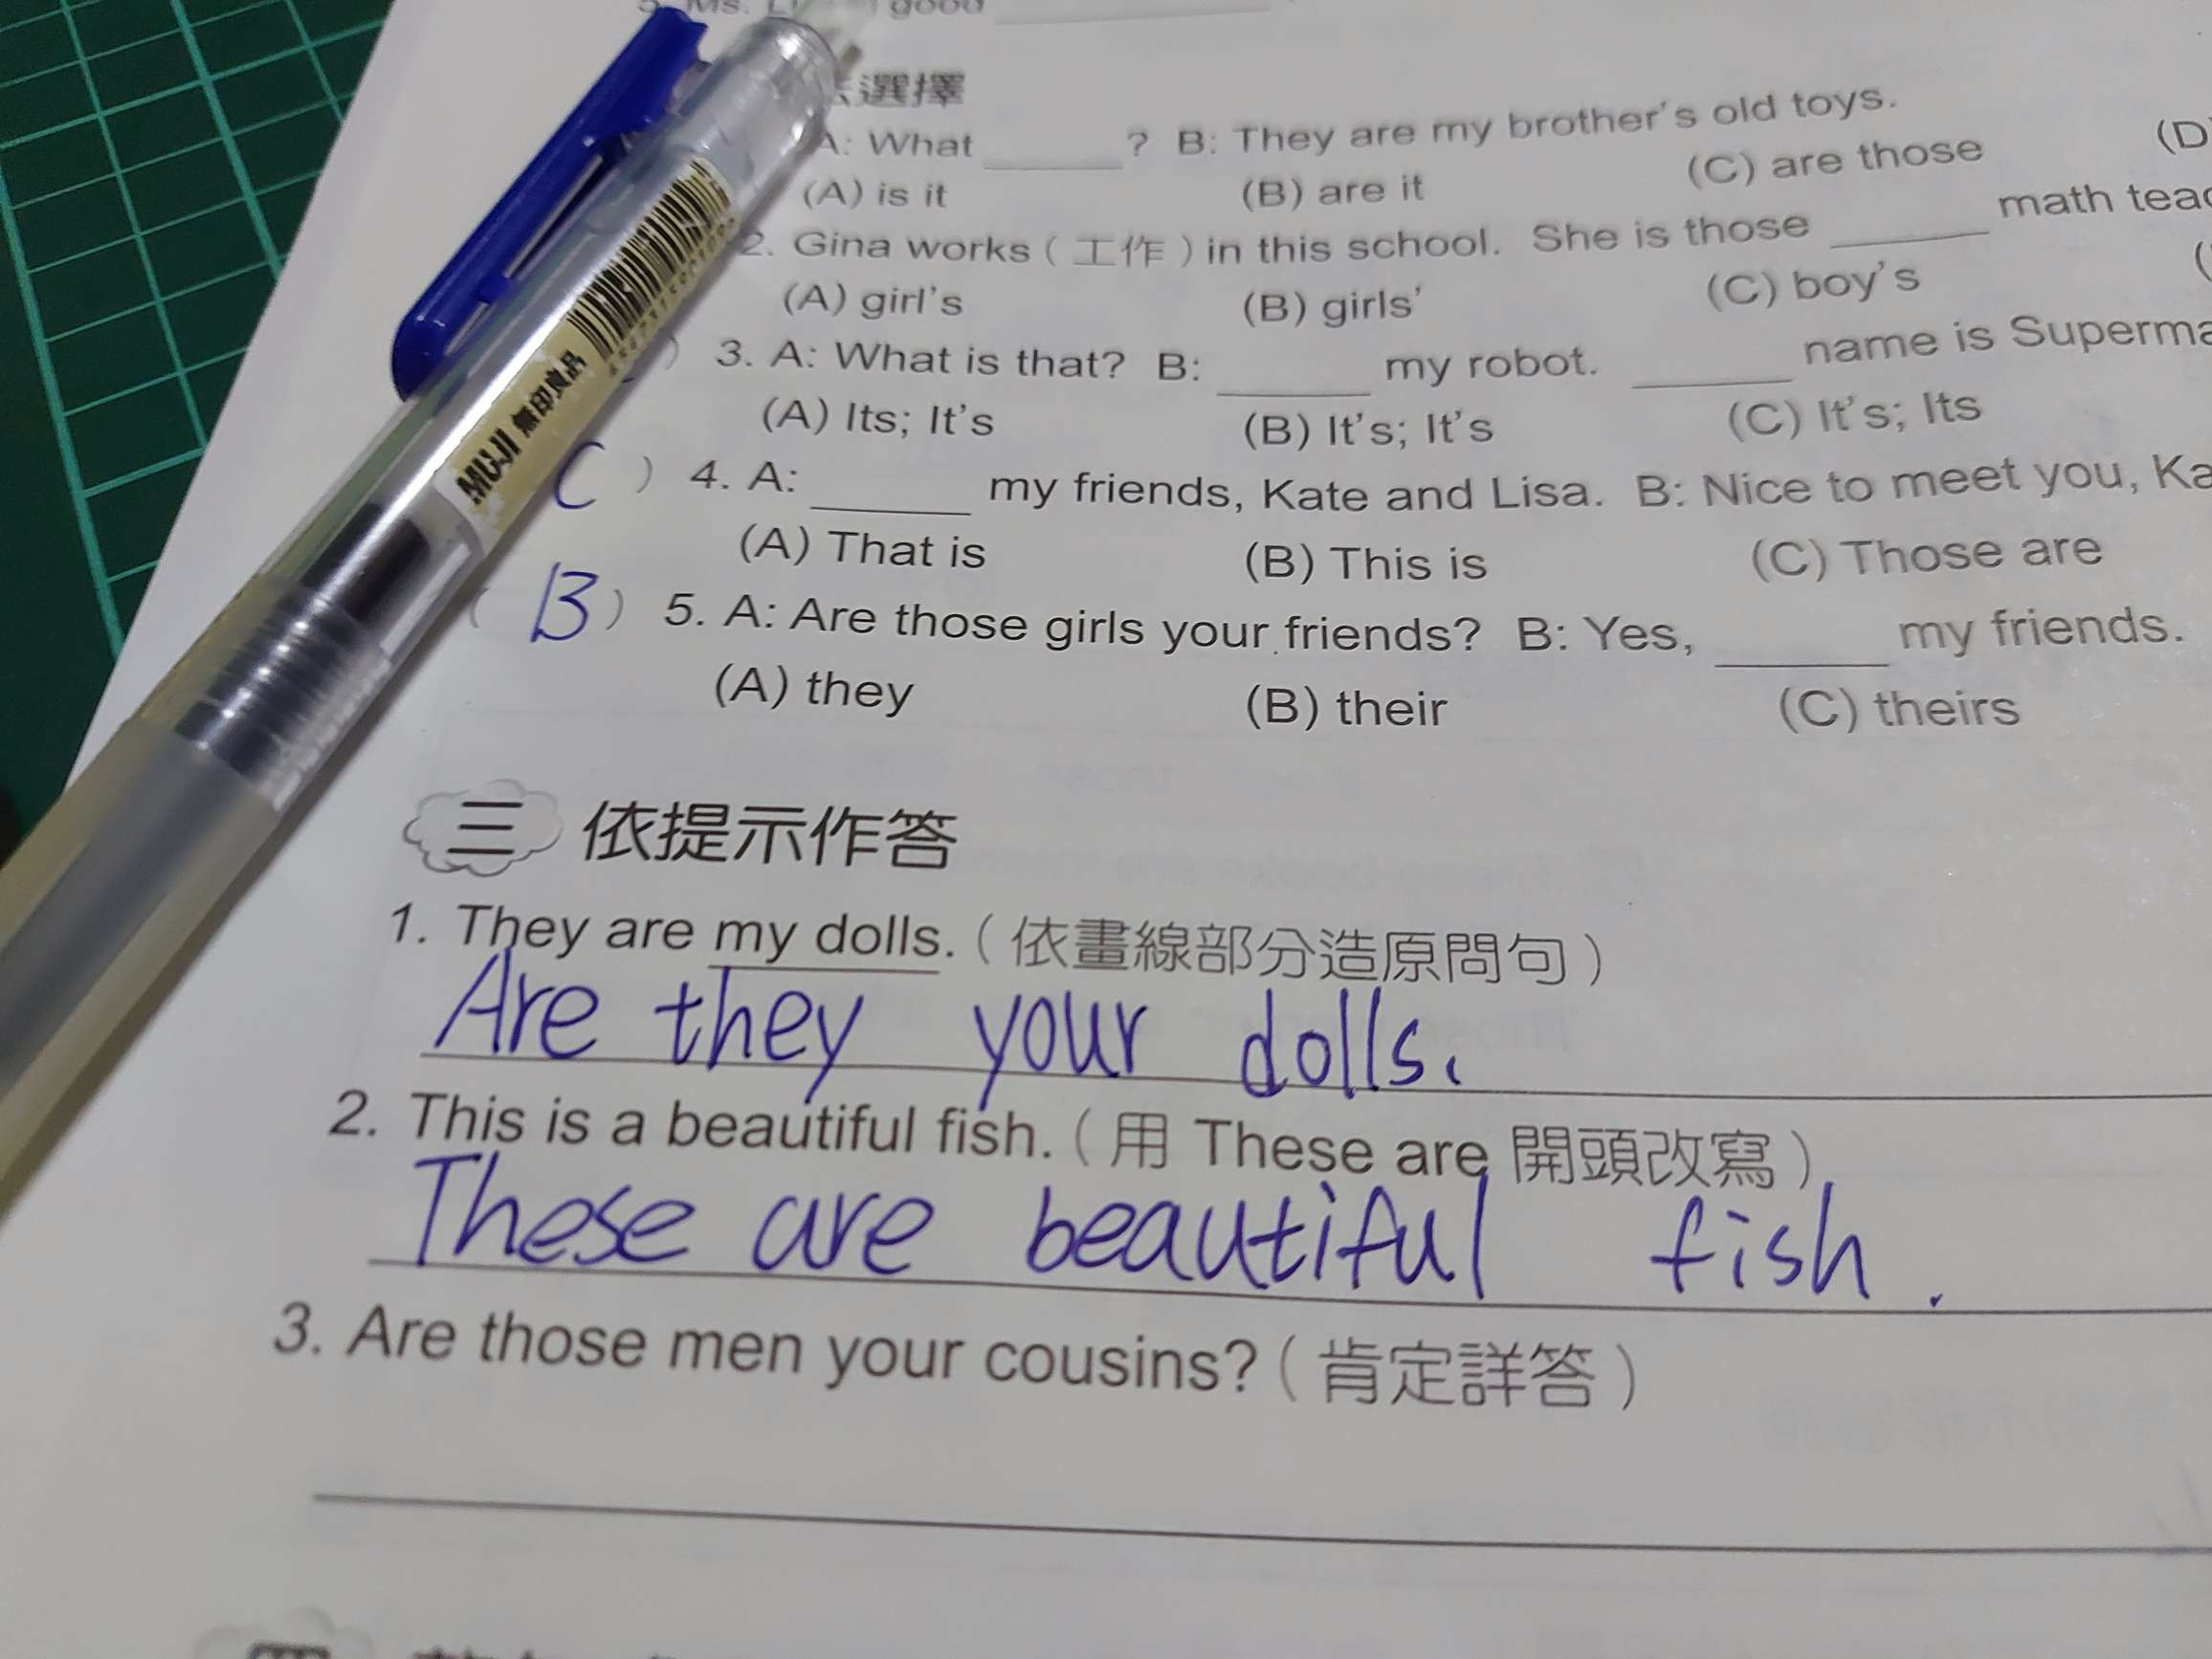 good
選擇
A: What ______ ? B: They are my brother's old toys.
(A) is it (B) are it (C) are those (D)
2. Gina works (工作) in this school. She is those ______ math
(A) girl's (B) girls' (C) boy's
) 3. A: What is that? B: ______ my robot. ______ name is
(A) Its; It's (B) It's; It's (C) It's; Its
C ) 4. A: ______ my friends, Kate and Lisa. B: Nice to meet you,
(A) That is (B) This is (C) Those are
( B ) 5. A: Are those girls your friends? B: Yes, ______ my friends.
(A) they (B) their (C) theirs
MUJI 無印良品
三 依提示作答
1. They are my dolls. (依畫線部分造原問句)
Are they your dolls.
2. This is a beautiful fish. (用 These are 開頭改寫)
These are beautiful fish.
3. Are those men your cousins? (肯定詳答)